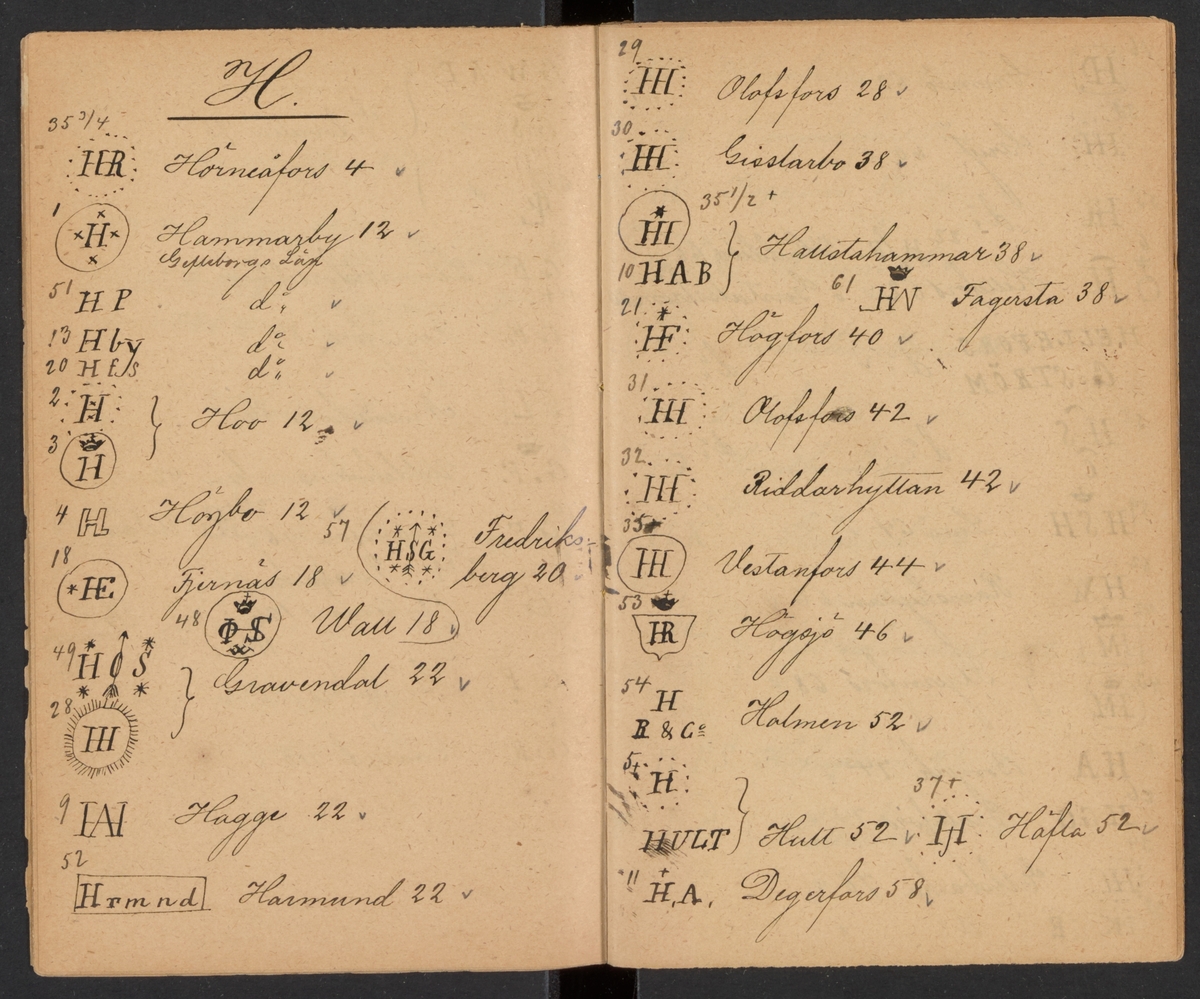 H.
35 3/4
HR Hörneåfors 4
1
H Hammarby 12
Gefleborgs Län
51 HP do
13 Hby do
20 HFs do
2 H
3 H
Hoo 12
4 H Höybo 12
18
HE Fjernäs 18
57 HSG Fredriks-
berg 20
48 ΦS Wall 18
49 HOS
28 HH
Gravendal 22
9 HAH Hagge 22
52
Hrmnd Harmund 22
29
HH Olofsfors 28
30
HH Gisslarbo 38
35 1/2 +
HH
10 HAB
Hallstahammar 38
61 HW Fagersta 38
21
HF Högfors 40
31
HH Olofsfors 42
32
HH Riddarhyttan 42
35+
HH Vestanfors 44
53
HR Högsjö 46
54 H
R & Co
Holmen 52
5+ H
HULT
Hult 52
37+
HH Häfla 52
11 H.A. Degerfors 58